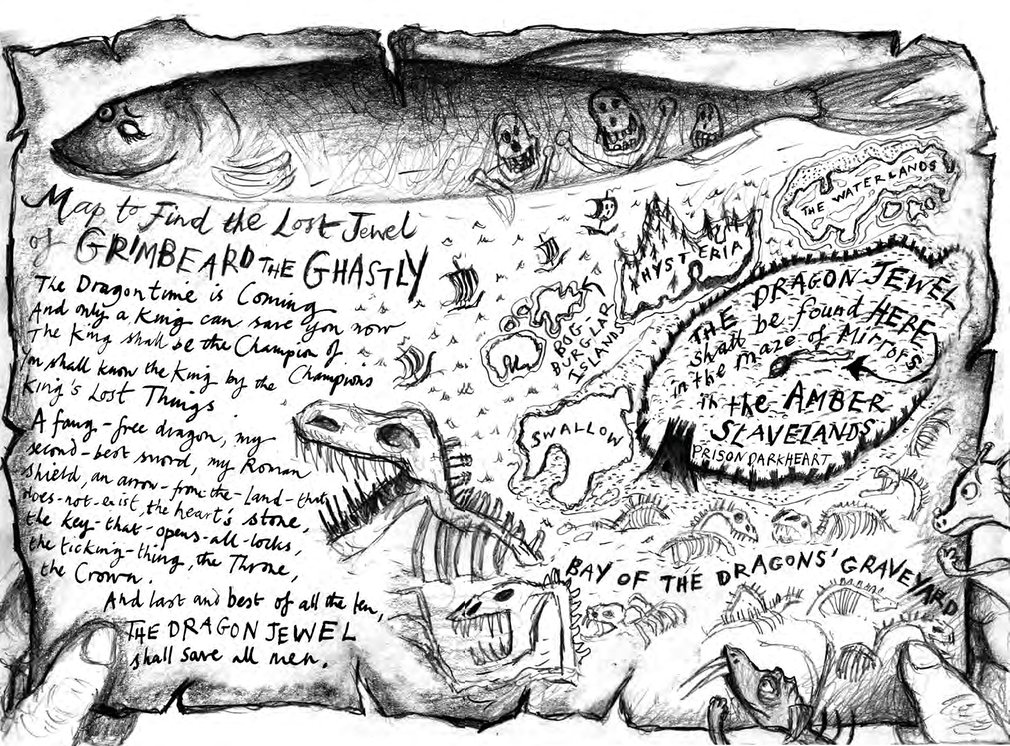 Map to Find the Lost Jewel
of GRIMBEARD THE GHASTLY
The Dragontime is Coming
And only a King can save you now
The King shall be the Champion of
You shall know the King by the Champions
King's Lost Things
A fang-free dragon, my
second-best sword, my Roman
shield, an arrow-from-the-land-that-
does-not-exist, the heart's stone,
the key-that-opens-all-locks,
the ticking-thing, the Throne,
the Crown.
And last and best of all the ten,
THE DRAGON JEWEL
shall save all men.
THE WATERLANDS
HYSTERIA
BOG
BURGLAR
ISLANDS
SWALLOW
THE DRAGON JEWEL
shall be found HERE
in the maze of Mirrors
in the AMBER
SLAVELANDS
PRISON DARKHEART
BAY OF THE DRAGONS' GRAVEYARD